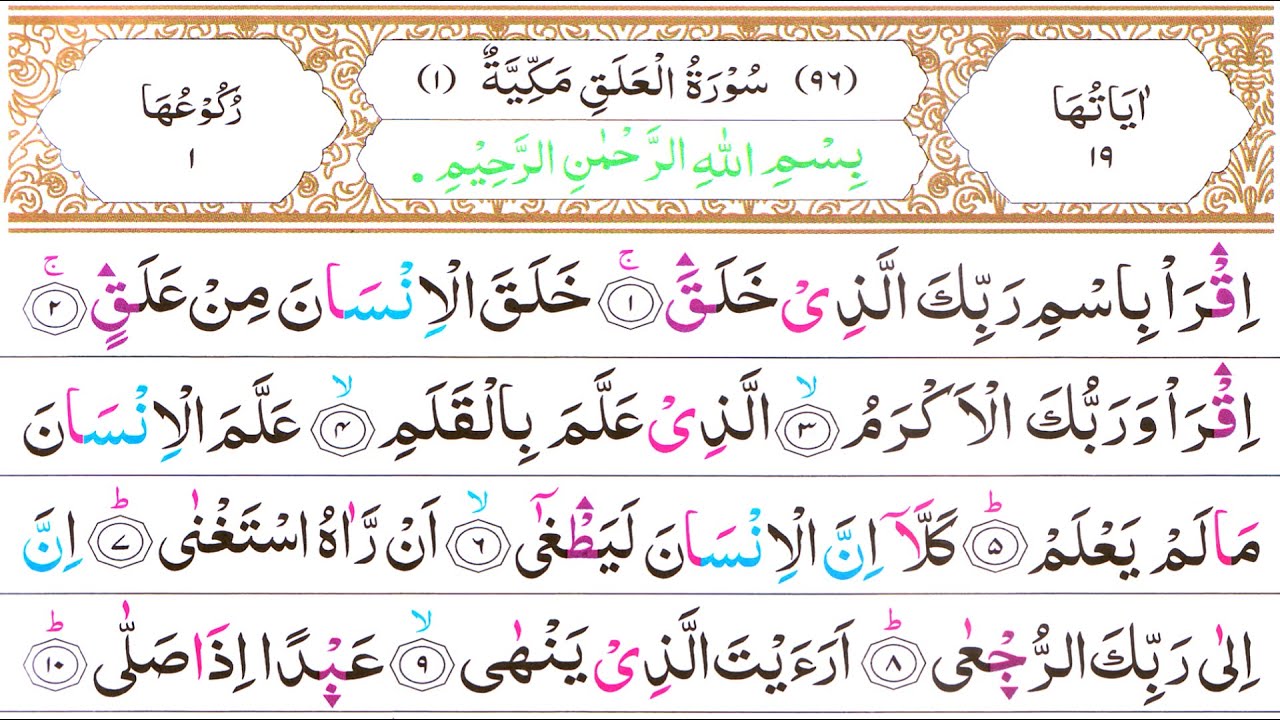 اٰيَاتُهَا
١٩
(٩٦) سُوْرَةُ الْعَلَقِ مَكِّيَّةٌ (١)
رُكُوْعُهَا
١
بِسْمِ اللّٰهِ الرَّحْمٰنِ الرَّحِيْمِ .
اِقْرَاْ بِاسْمِ رَبِّكَ الَّذِىْ خَلَقَ ۚ ١ خَلَقَ الْاِنْسَانَ مِنْ عَلَقٍ ۚ ٢
اِقْرَاْ وَرَبُّكَ الْاَكْرَمُ ۙ ٣ الَّذِىْ عَلَّمَ بِالْقَلَمِ ۙ ۴ عَلَّمَ الْاِنْسَانَ
مَا لَمْ يَعْلَمْ ؕ ۵ كَلَّاۤ اِنَّ الْاِنْسَانَ لَيَطْغٰٓى ۙ ۶ اَنْ رَّاٰهُ اسْتَغْنٰى ؕ ٧ اِنَّ
اِلٰى رَبِّكَ الرُّجْعٰى ؕ ٨ اَرَءَيْتَ الَّذِىْ يَنْهٰى ۙ ٩ عَبْدًا اِذَا صَلّٰى ؕ ١٠